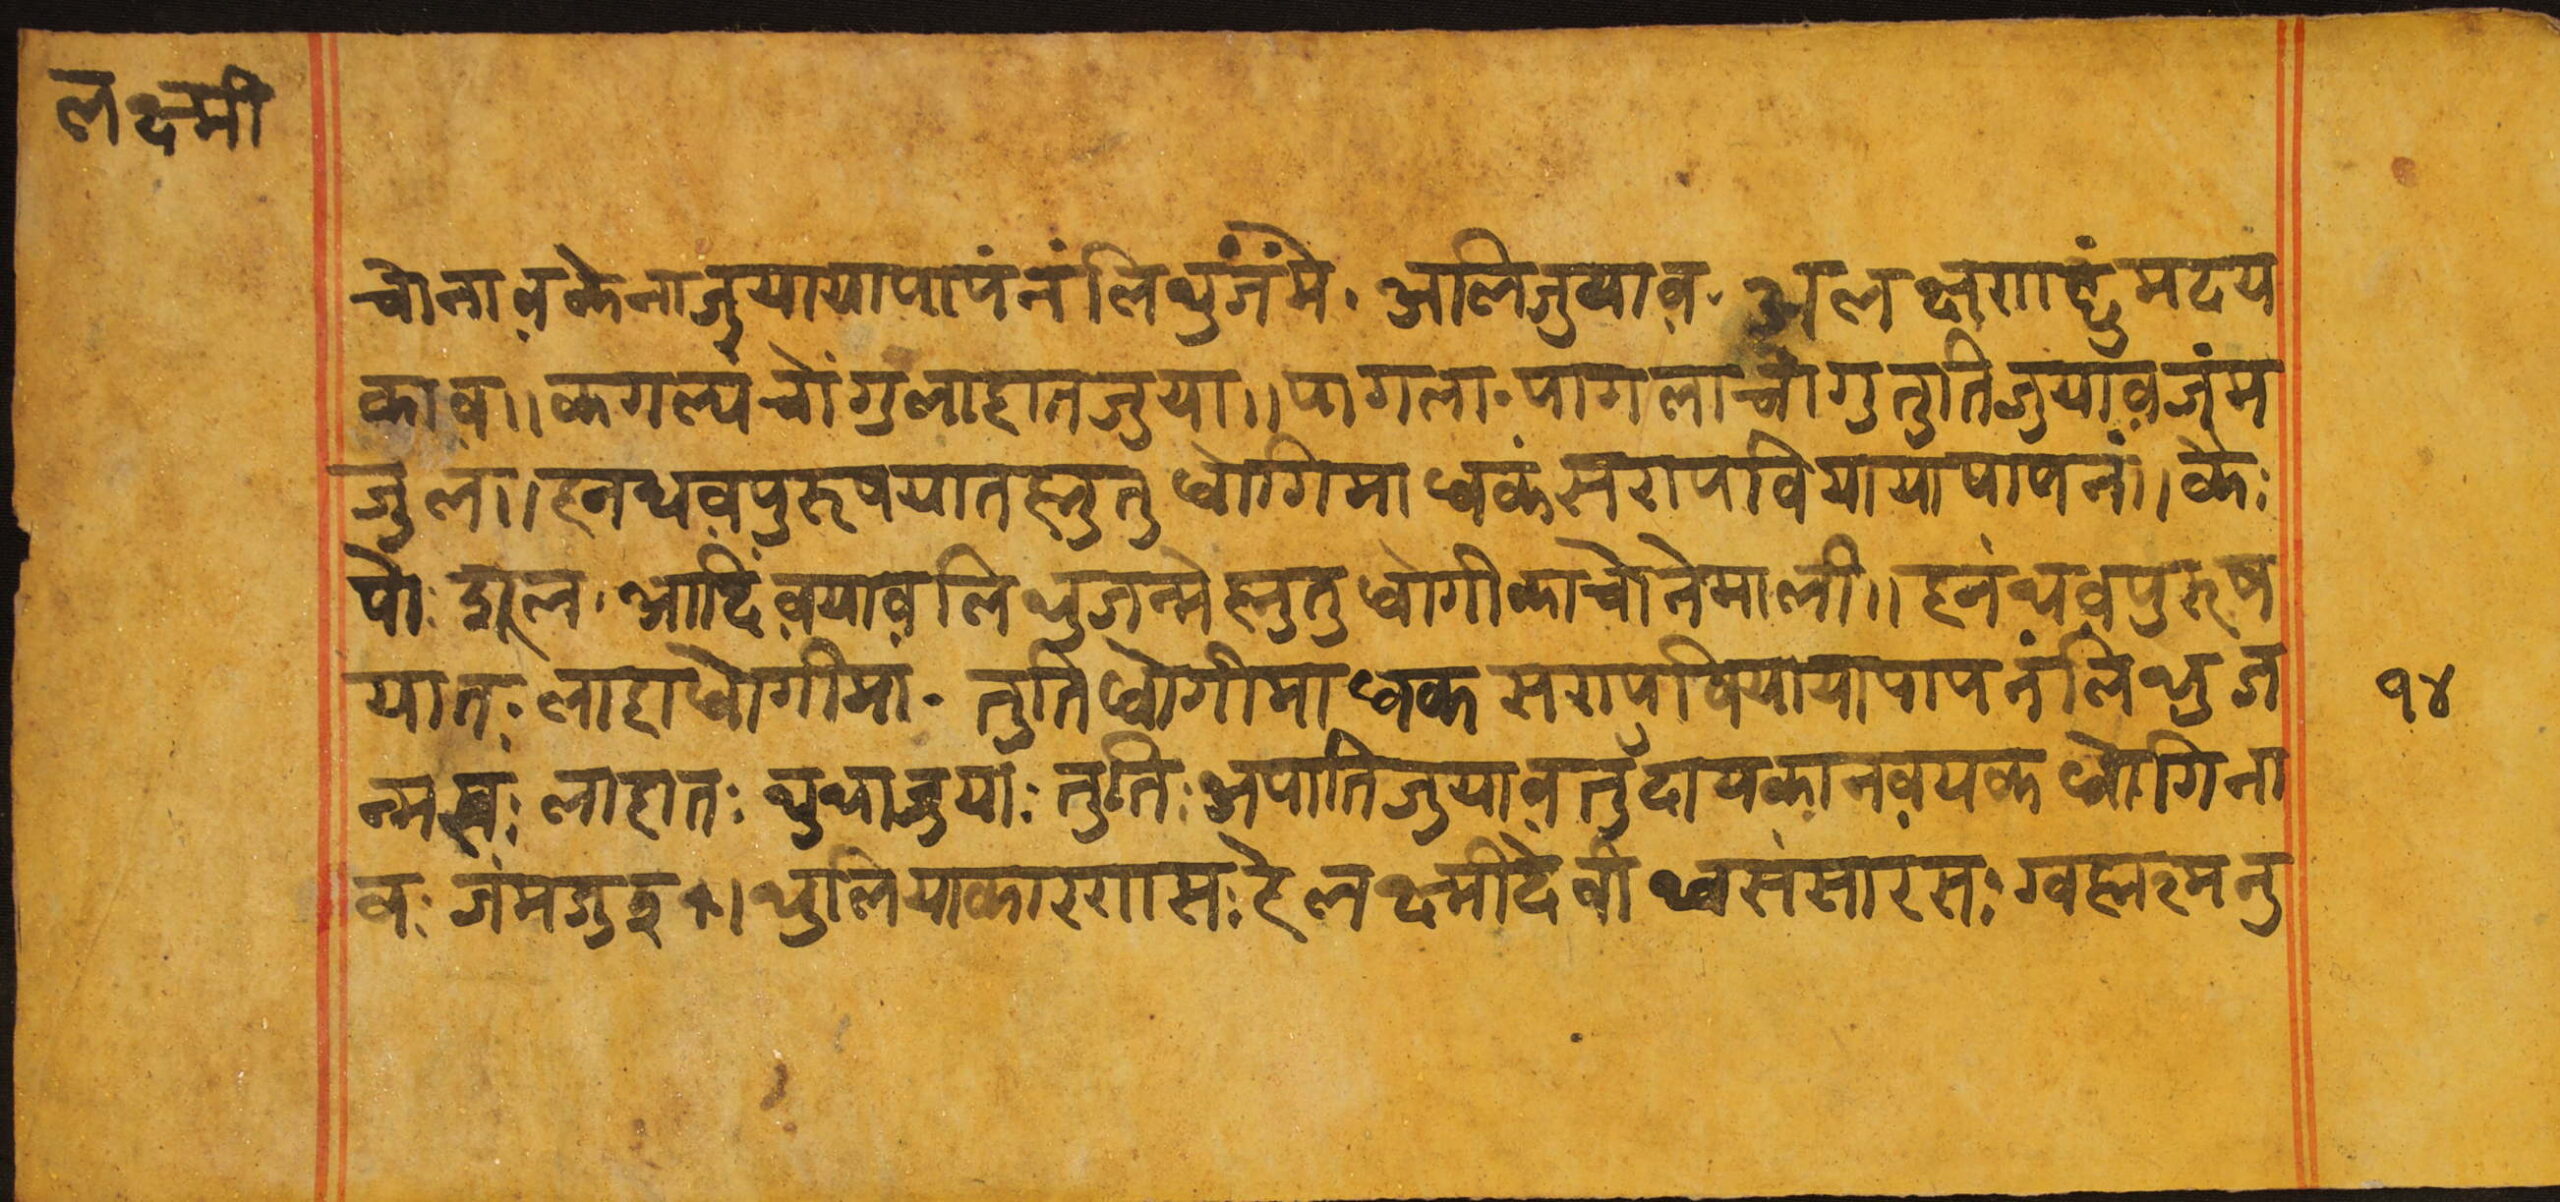 लक्ष्मी
चोनाव केनाजुयायापापनं लिथुजंमे . अलिजुयाव . अलक्षणाह्मुं मदय
काव ॥ कगल्यं चोंगु लाहातजुया ॥ पागला . पागलाचोगु तुतिजुयाव जंम
जुल ॥ हनं थव पुरूषयात ह्नुतु ध्वागिमा धकं सरापवियाया पापनं ॥ केः
पोः शूल . आदिं वयाव लिथुजन्मे ह्नुतु ध्वागीकाचोनेमाली ॥ हनं थव पुरूष
यातः लाहा ध्वोगीमा . तुति ध्वोगीमा धक सरापवियाया पापनं लिथुज
न्मसः लाहातः थुथाजुयाः तुतिः अपातिजुयाव तुँदायकानवयक ध्वोगिना
वः जंमजुइ ॥ थुलियाकारणसः हे लक्ष्मीदेवी थ्व संसारसः ग्वह्मरमनु
१४